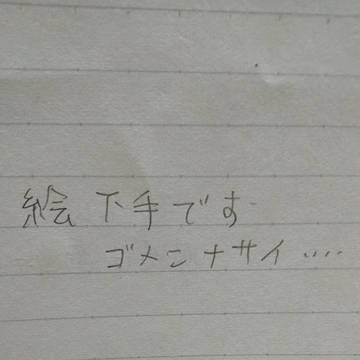 絵下手です
ゴメンナサイ....